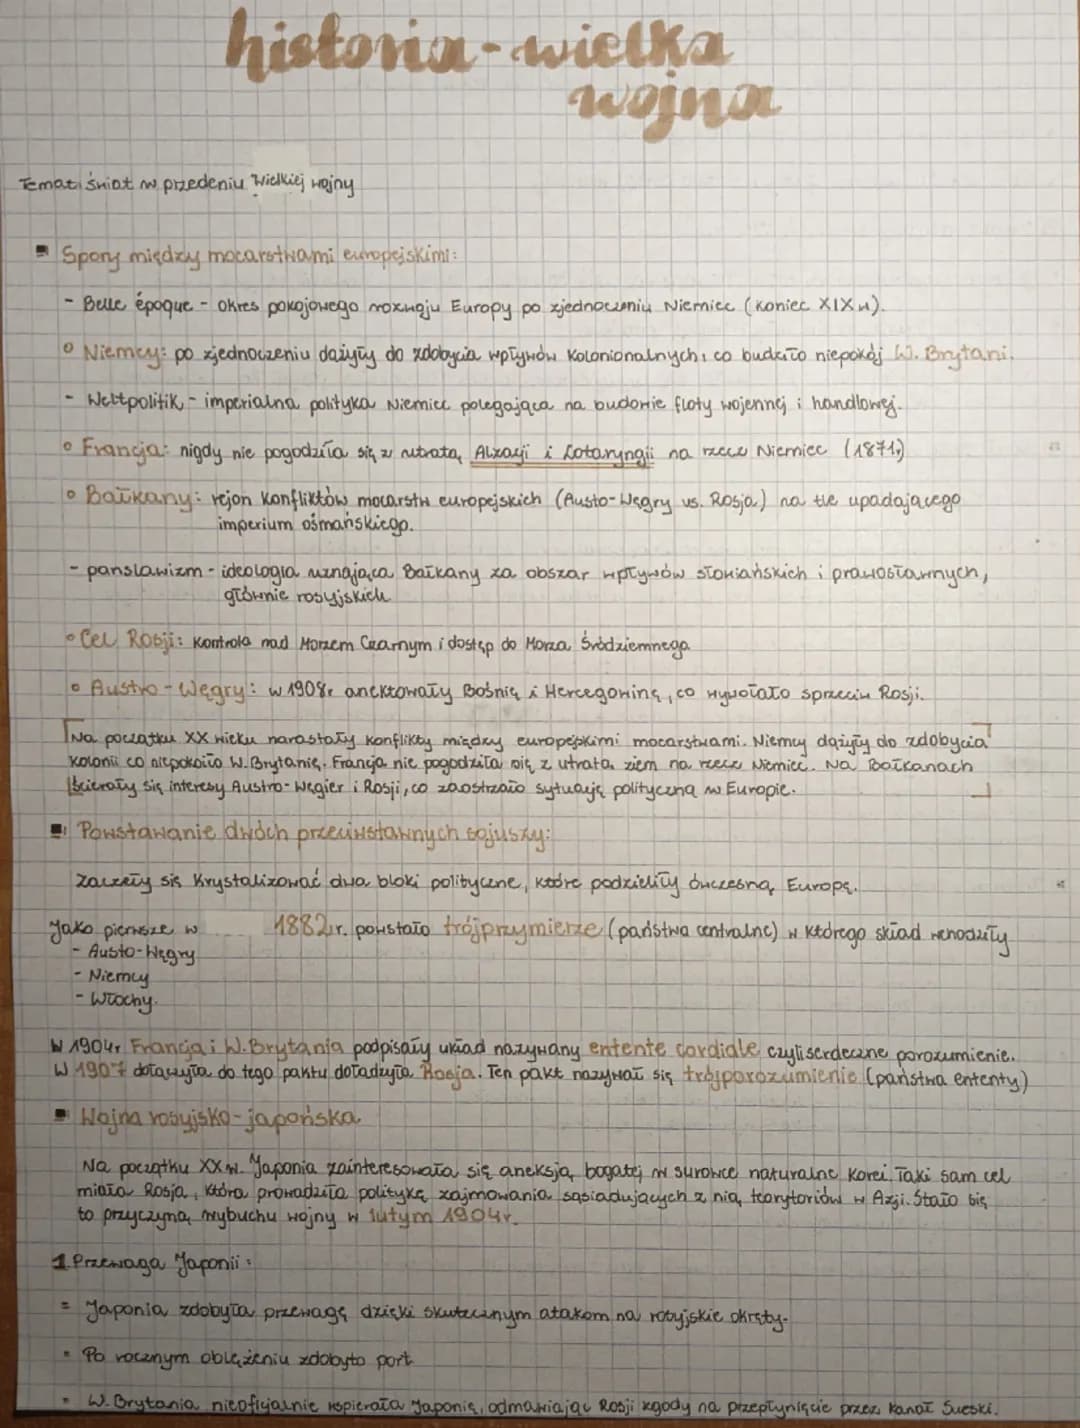 historia - wielka
wojna
Temat: świat w przedeniu Wielkiej wojny
Spory między mocarstwami europejskimi:
- Belle époque - okres pokojowego rozwoju Europy po zjednoczeniu Niemiec (koniec XIX w).
° Niemcy: po zjednoczeniu dążyły do zdobycia wpływów kolonionalnych, co budziło niepokój W. Brytani.
- Weltpolitik - imperialna polityka Niemiec polegająca na budowie floty wojennej i handlowej.
° Francja: nigdy nie pogodziła się z utratą Alzacji i Lotaryngii na rzecz Niemiec (1871r)
° Bałkany: rejon konfliktów mocarstw europejskich (Austo-Węgry vs. Rosja) na tle upadającego
imperium ośmańskiego.
- panslawizm - ideologia uznająca Bałkany za obszar wpływów słowiańskich i prawosławnych,
głównie rosyjskich
° Cel Rosji: kontrola nad Morzem Czarnym i dostęp do Morza Śródziemnego
° Austro-Węgry: w 1908r anektowały Bośnię i Hercegowinę, co wywołało sprzeciw Rosji.
Na początku XX wieku narastały konflikty między europejskimi mocarstwami. Niemcy dążyły do zdobycia
kolonii co niepokoiło W. Brytanię. Francja nie pogodziła się z utratą ziem na rzecz Niemiec. Na Bałkanach
ścierały się interesy Austro-Węgier i Rosji, co zaostrzało sytuację polityczną w Europie.
Powstawanie dwóch przeciwstawnych sojuszy:
Zaczęły się krystalizować dwa bloki polityczne, które podzieliły ówczesną Europę.
Jako pierwsze w 1882r. powstało trójprzymierze (państwa centralne) w którego skład wchodziły
- Austo-Węgry
- Niemcy
- Włochy.
W 1904r Francja i W. Brytania podpisały układ nazywany entente cordiale czyli serdeczne porozumienie.
W 1907 dołączyła do tego paktu dołądzyła Rosja. Ten pakt nazywał się trójporozumienie (państwa ententy)
Wojna rosyjsko-japońska
Na początku XX w. Japonia zainteresowała się aneksją bogatej w surowce naturalne Korei. Taki sam cel
miała Rosja, która prowadziła politykę zajmowania sąsiadujących z nią terytoriów w Azji. Stało się
to przyczyną wybuchu wojny w lutym 1904r.
1 Przewaga Japonii:
- Japonia zdobyła przewagę dzięki skutecznym atakom na rosyjskie okręty.
- Po rocznym oblężeniu zdobyto port
- W. Brytania nieoficjalnie wspierała Japonię, odmawiając Rosji zgody na przepłynięcie przez kanał Sueski.